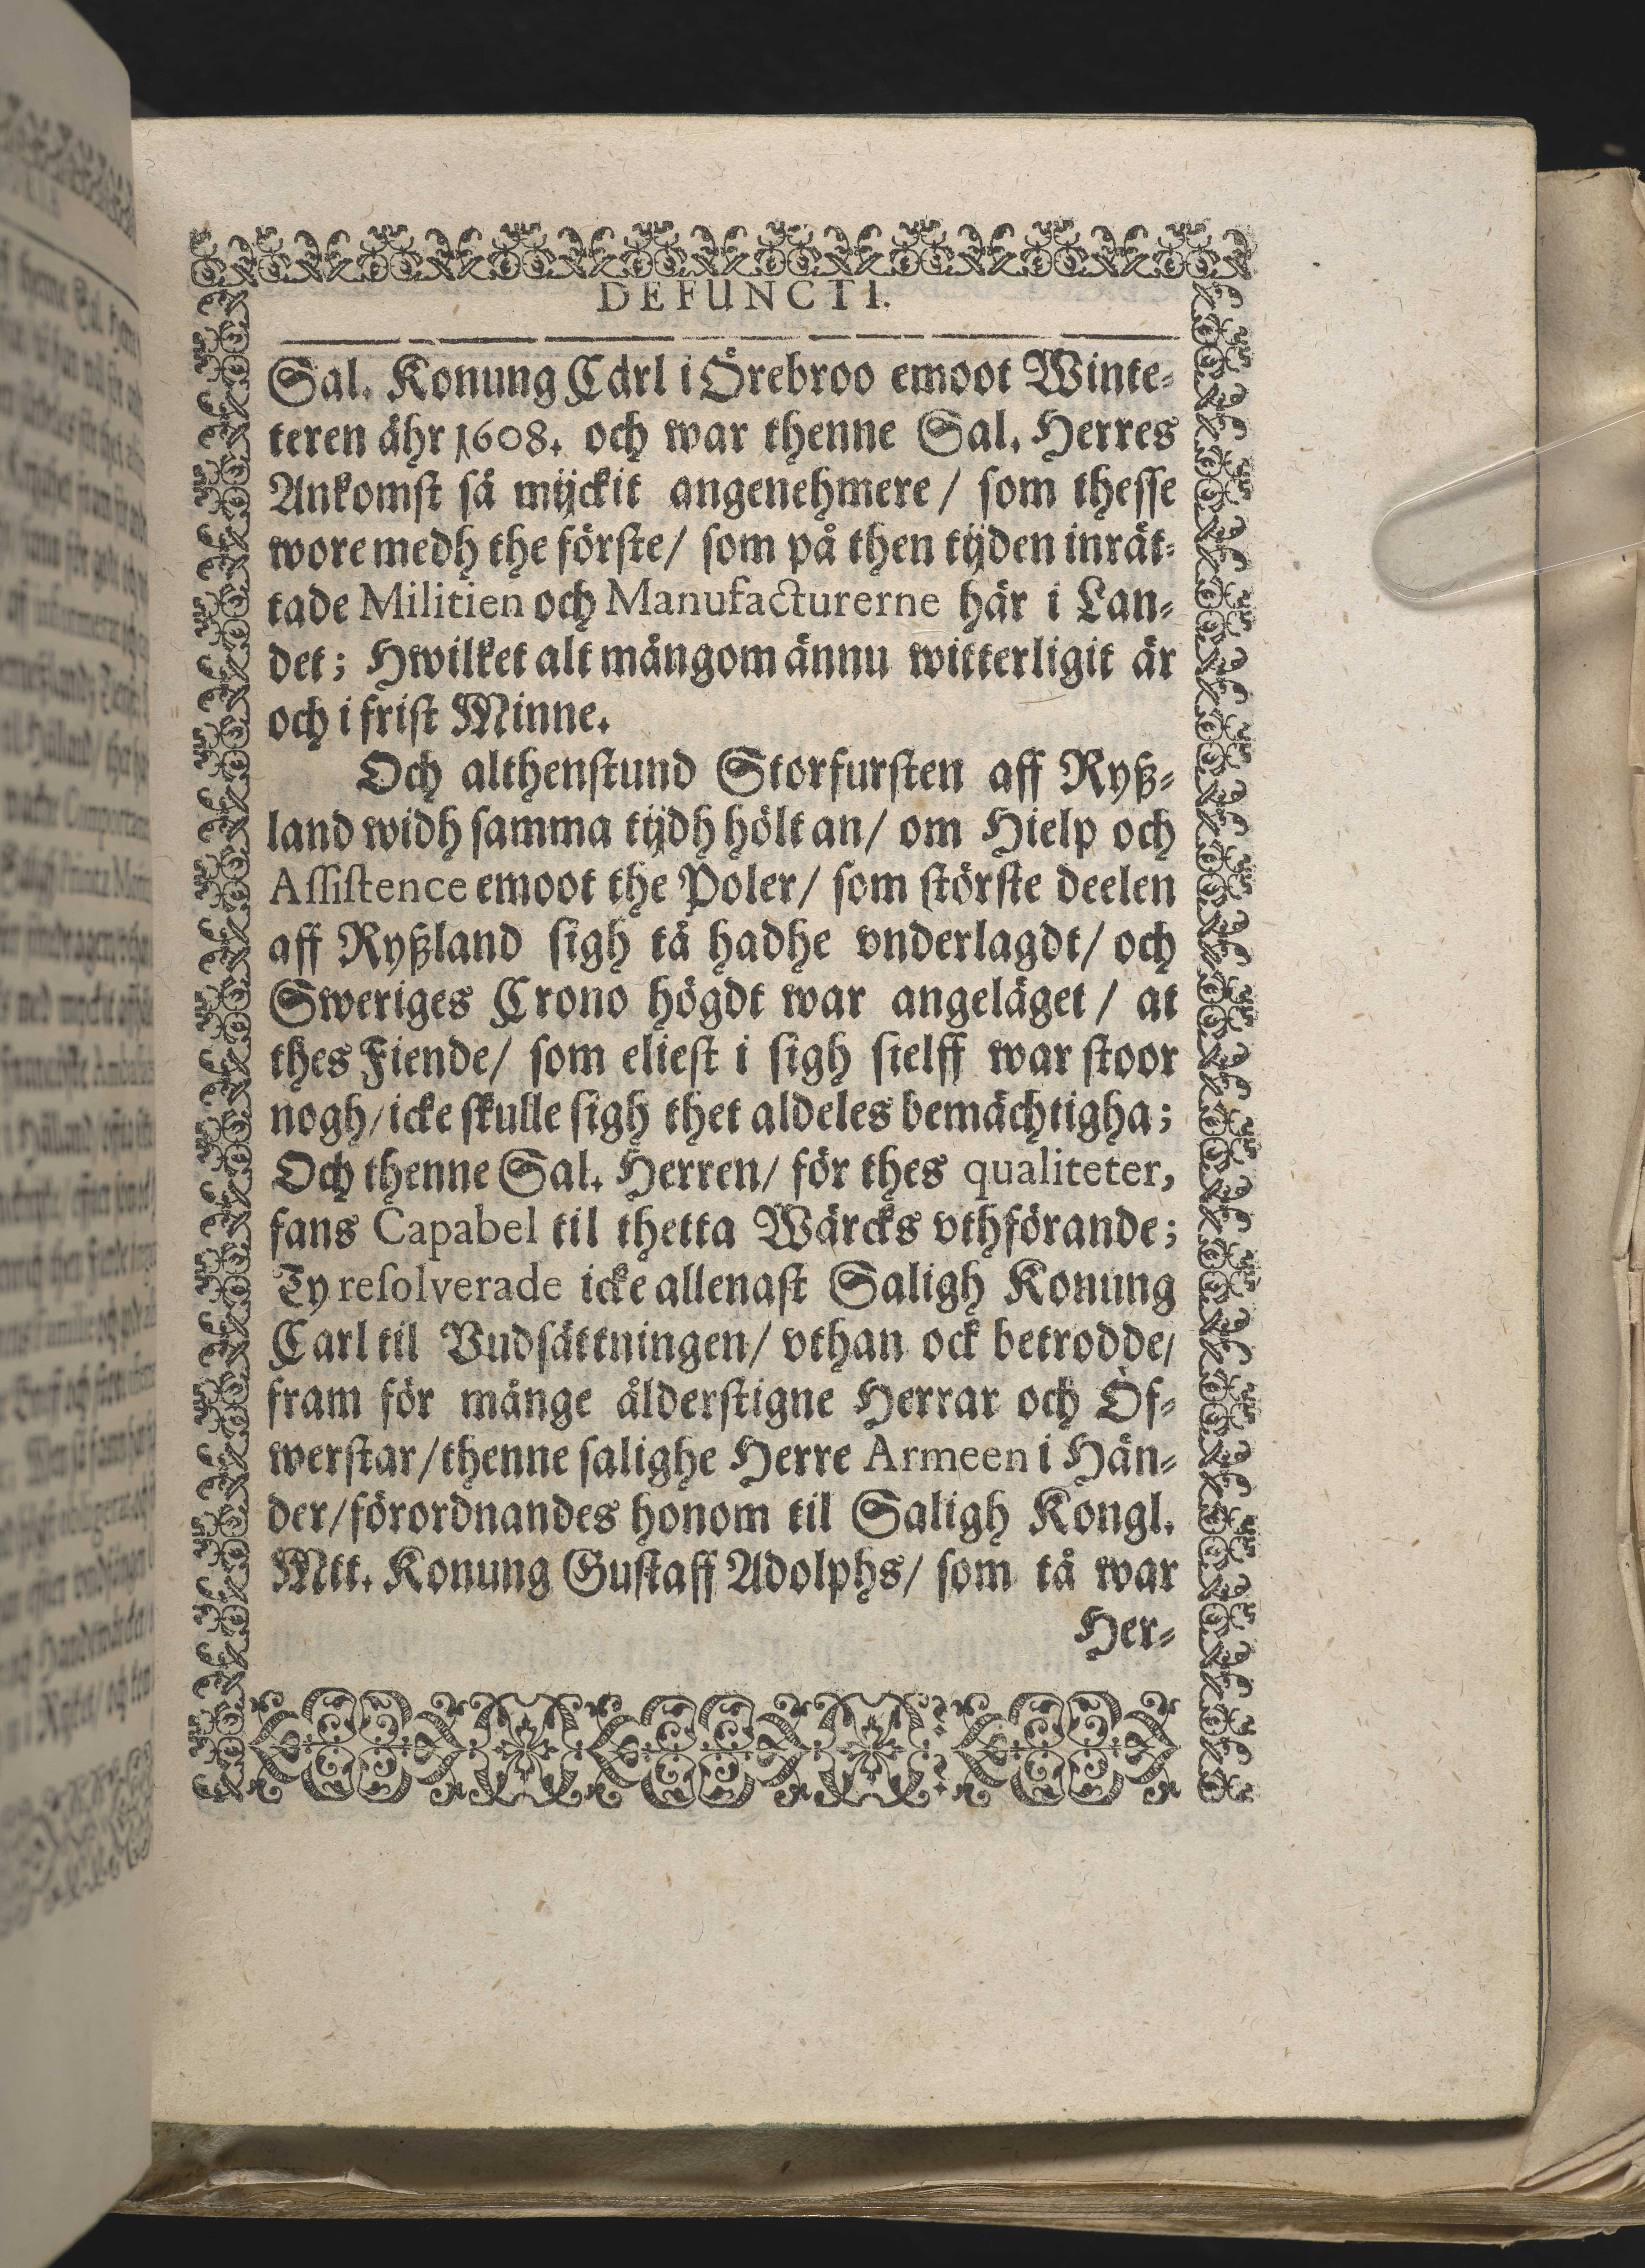 DEFUNCTI.
Sal. Konung Carl i Örebroo emoot Winte-
teren åhr 1608. och war thenne Sal. Herres
Ankomst så mÿckit angenehmere / som thesse
wore medh the förste / som på then tÿden inrät-
tade Militien och Manufacturerne här i Lan-
det; Hwilket alt mångom ännu witterligit är
och i frist Minne.
Och althenstund Storfursten aff Ryß-
land widh samma tÿdh hölt an / om Hielp och
Assistence emoot the Poler / som störste deelen
aff Ryßland sigh tå hadhe vnderlagdt / och
Sweriges Crono högdt war angeläget / at
thes Fiende / som eliest i sigh sielff war stoor
nogh / icke skulle sigh thet aldeles bemächtigha;
Och thenne Sal. Herren / för thes qualiteter,
fans Capabel til thetta Wärcks vthförande;
Ty resolverade icke allenast Saligh Konung
Carl til Vudsättningen / vthan ock betrodde /
fram för månge ålderstigne Herrar och Öf-
werstar / thenne salighe Herre Armeen i Hän-
der / förordnandes honom til Saligh Kongl.
Mtt. Konung Gustaff Adolphs / som tå war
Her-